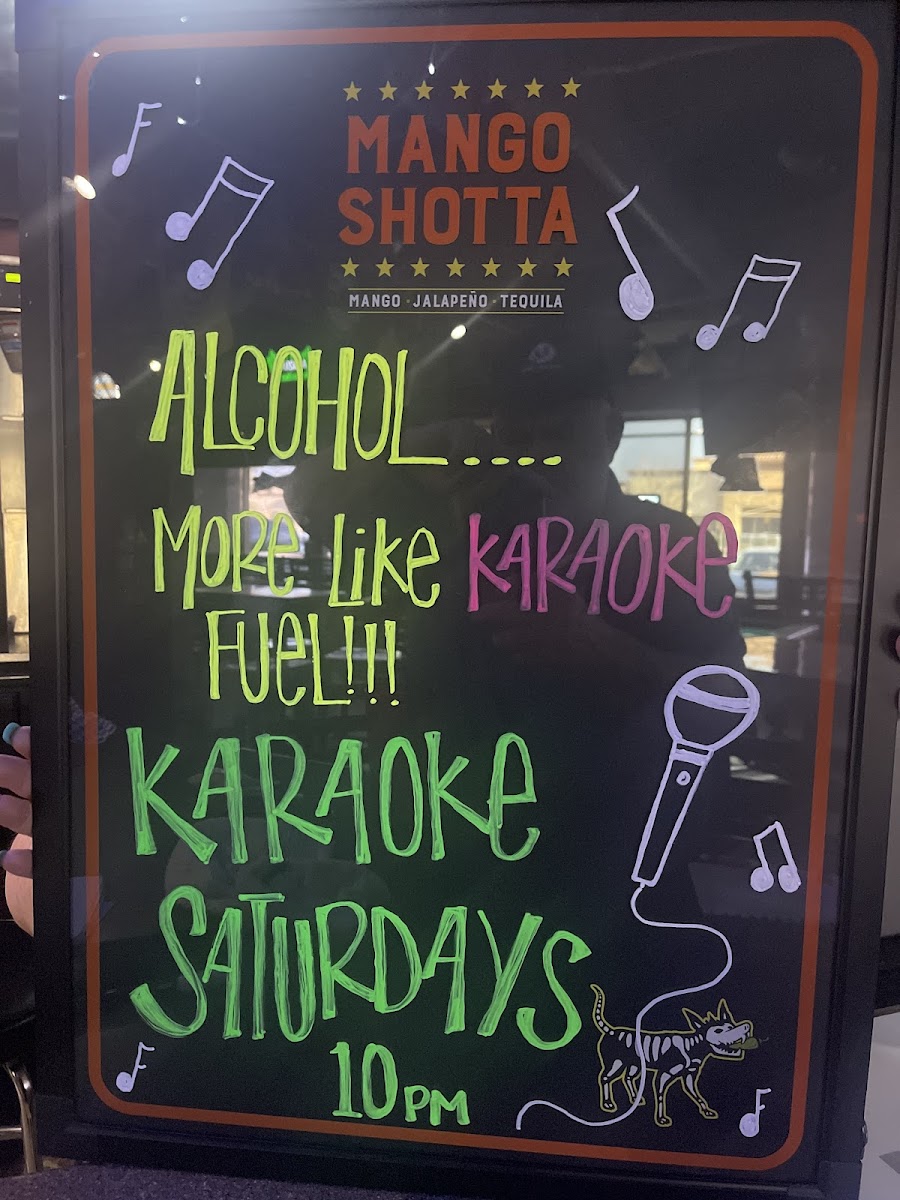 MANGO
SHOTTA
MANGO · JALAPEÑO · TEQUILA
ALCOHOL....
MORe LiKe KARAOKe
FUeL!!!
KARAOKe
SATURDAYS
10PM